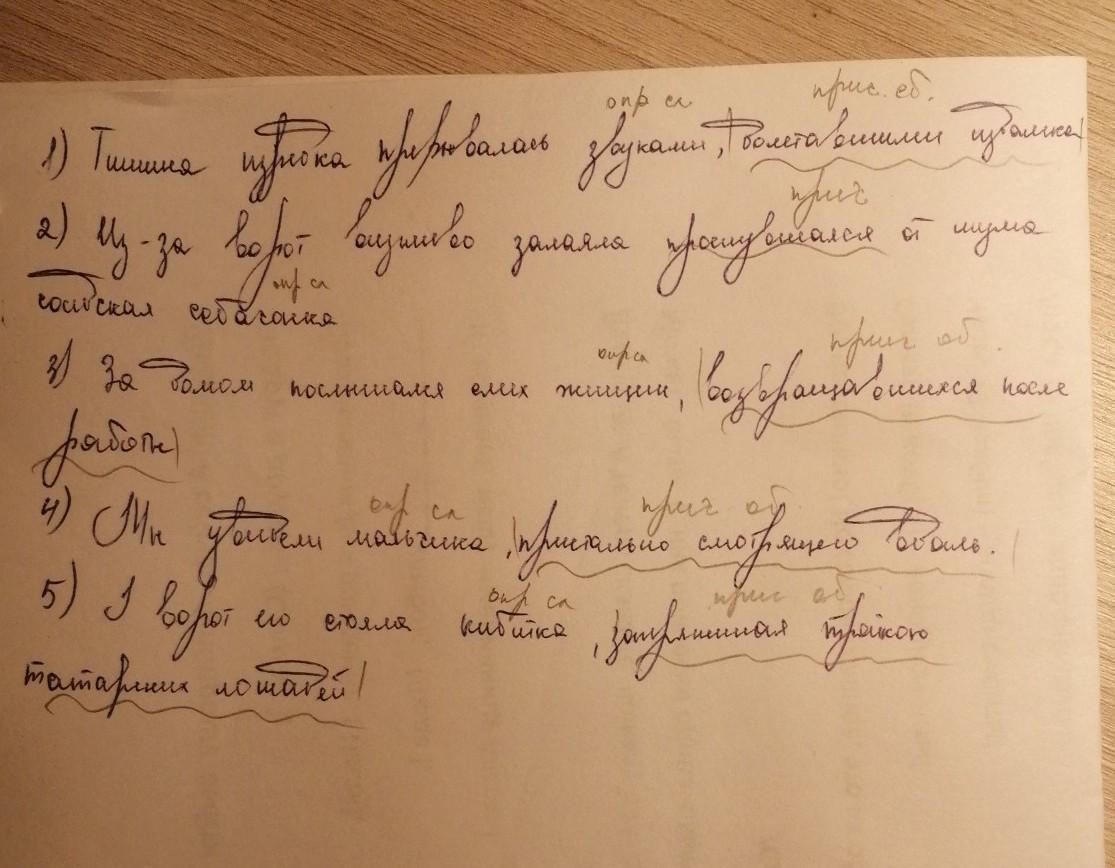 опр сл прич. об.
1) Тишина изредка прерывалась звуками, |долетавшими издалека|
прич
2) Из-за ворот визгливо залаяла проснувшаяся от шума
опр сл
соседская собачонка
опр сл прич об.
3) За домом послышался смех женщин, |возвращавшихся после
работы|
опр сл прич об.
4) Мы увидели мальчика, |пристально смотрящего вдаль.|
опр сл прич об
5) У ворот его стояла кибитка, |запряженная тройкою
татарских лошадей|